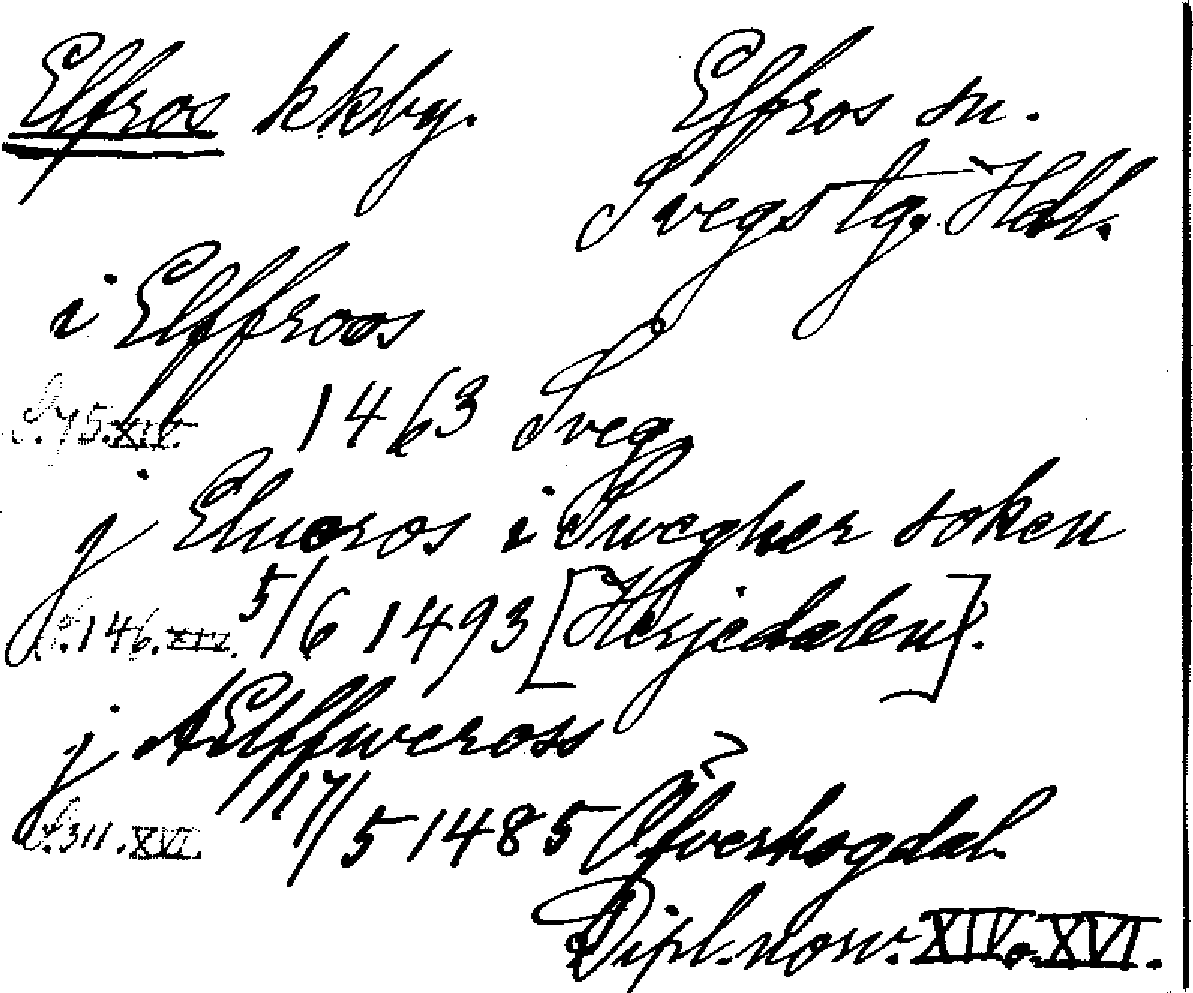 Elfros kkby. Elfros sn.
Svegs tg. Hdl.
i Elffroos
S. 75. XIV. 1463 Sveg
j Elueros i Swegher soken
S. 146. XIV. 5/6 1493 [Herjedalen].
j AElffweross
S. 311. XVI. 17/5 1485 Öfverhogdal.
Dipl. norv. XIV o. XVI.